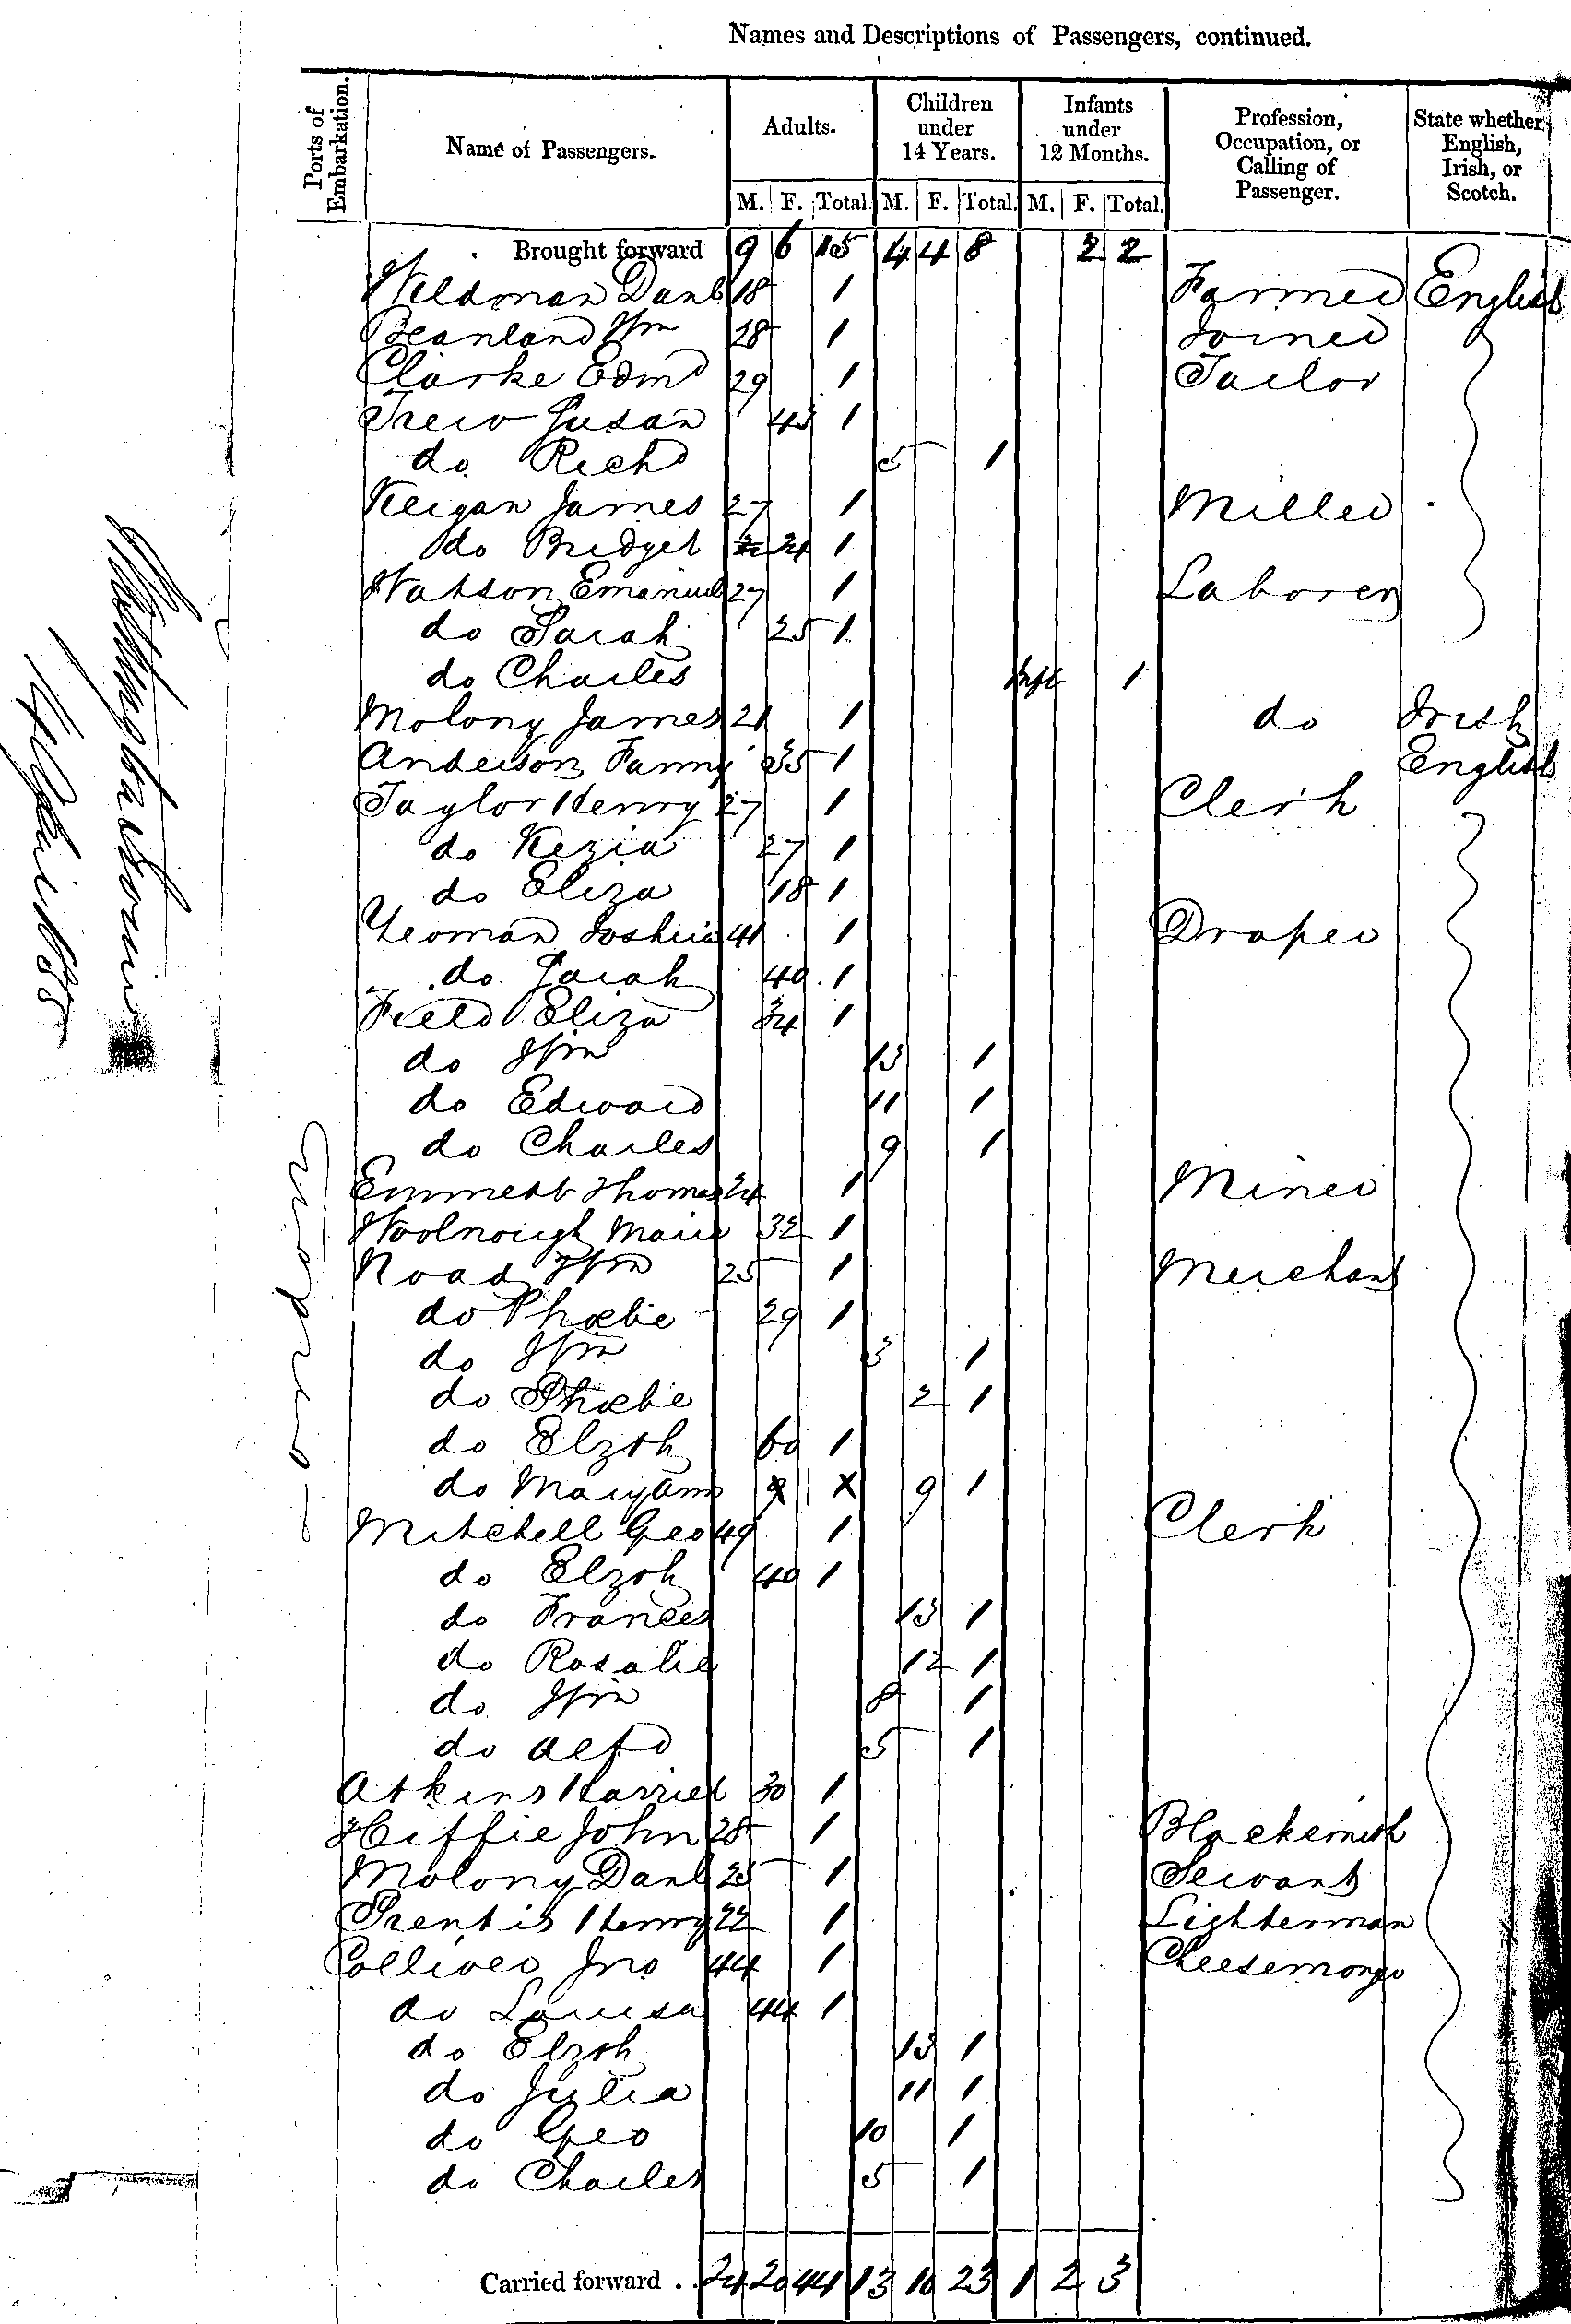 Names and Descriptions of Passengers, continued.
Ports of Embarkation. Name of Passengers. Adults. Children under 14 Years. Infants under 12 Months. Profession, Occupation, or Calling of Passenger. State whether English, Irish, or Scotch.
M. F. Total. M. F. Total. M. F. Total.
Brought forward 9 6 15 4 4 8 2 2
Weldman Danl 18 1 Farmer English
Beanland Wm 28 1 Joiner
Clarke Edmd 29 1 Tailor
Trew Susan 43 1
do Richd 5 1
Keigan James 27 1 Miller
do Bridget 24 1
Watson Emanuel 27 1 Laborer
do Sarah 25 1
do Charles Inft 1
Molony James 21 1 do Irish
Anderson Fanny 35 1 English
Taylor Henry 27 1 Clerk
do Kezia 27 1
do Eliza 18 1
Yeoman Joshua 41 1 Draper
do Sarah 40 1
Field Eliza 34 1
do Wm 13 1
do Edward 11 1
do Charles 9 1
Emmett Thomas 24 1 Miner
Woolnough Marie 32 1
Road Wm 25 1 Merchant
do Phœbe 29 1
do Wm 3 1
do Phœbe 2 1
do Elzth 60 1
do Maryann 9 X 9 1
Mitchell Geo 49 1 Clerk
do Elzth 40 1
do Frances 13 1
do Rosalie 12 1
do Wm 8 1
do Alfd 5 1
Atkins Harriet 30 1
Heffie John 28 1 Blacksmith
Molony Danl 25 1 Servant
Prentis Henry 22 1 Lighterman
Colliver Jno 44 1 Cheesemonger
do Louisa 44 1
do Elzth 13 1
do Julia 11 1
do Geo 10 1
do Charles 5 1
Carried forward . . 24 20 44 13 10 23 1 2 3
London